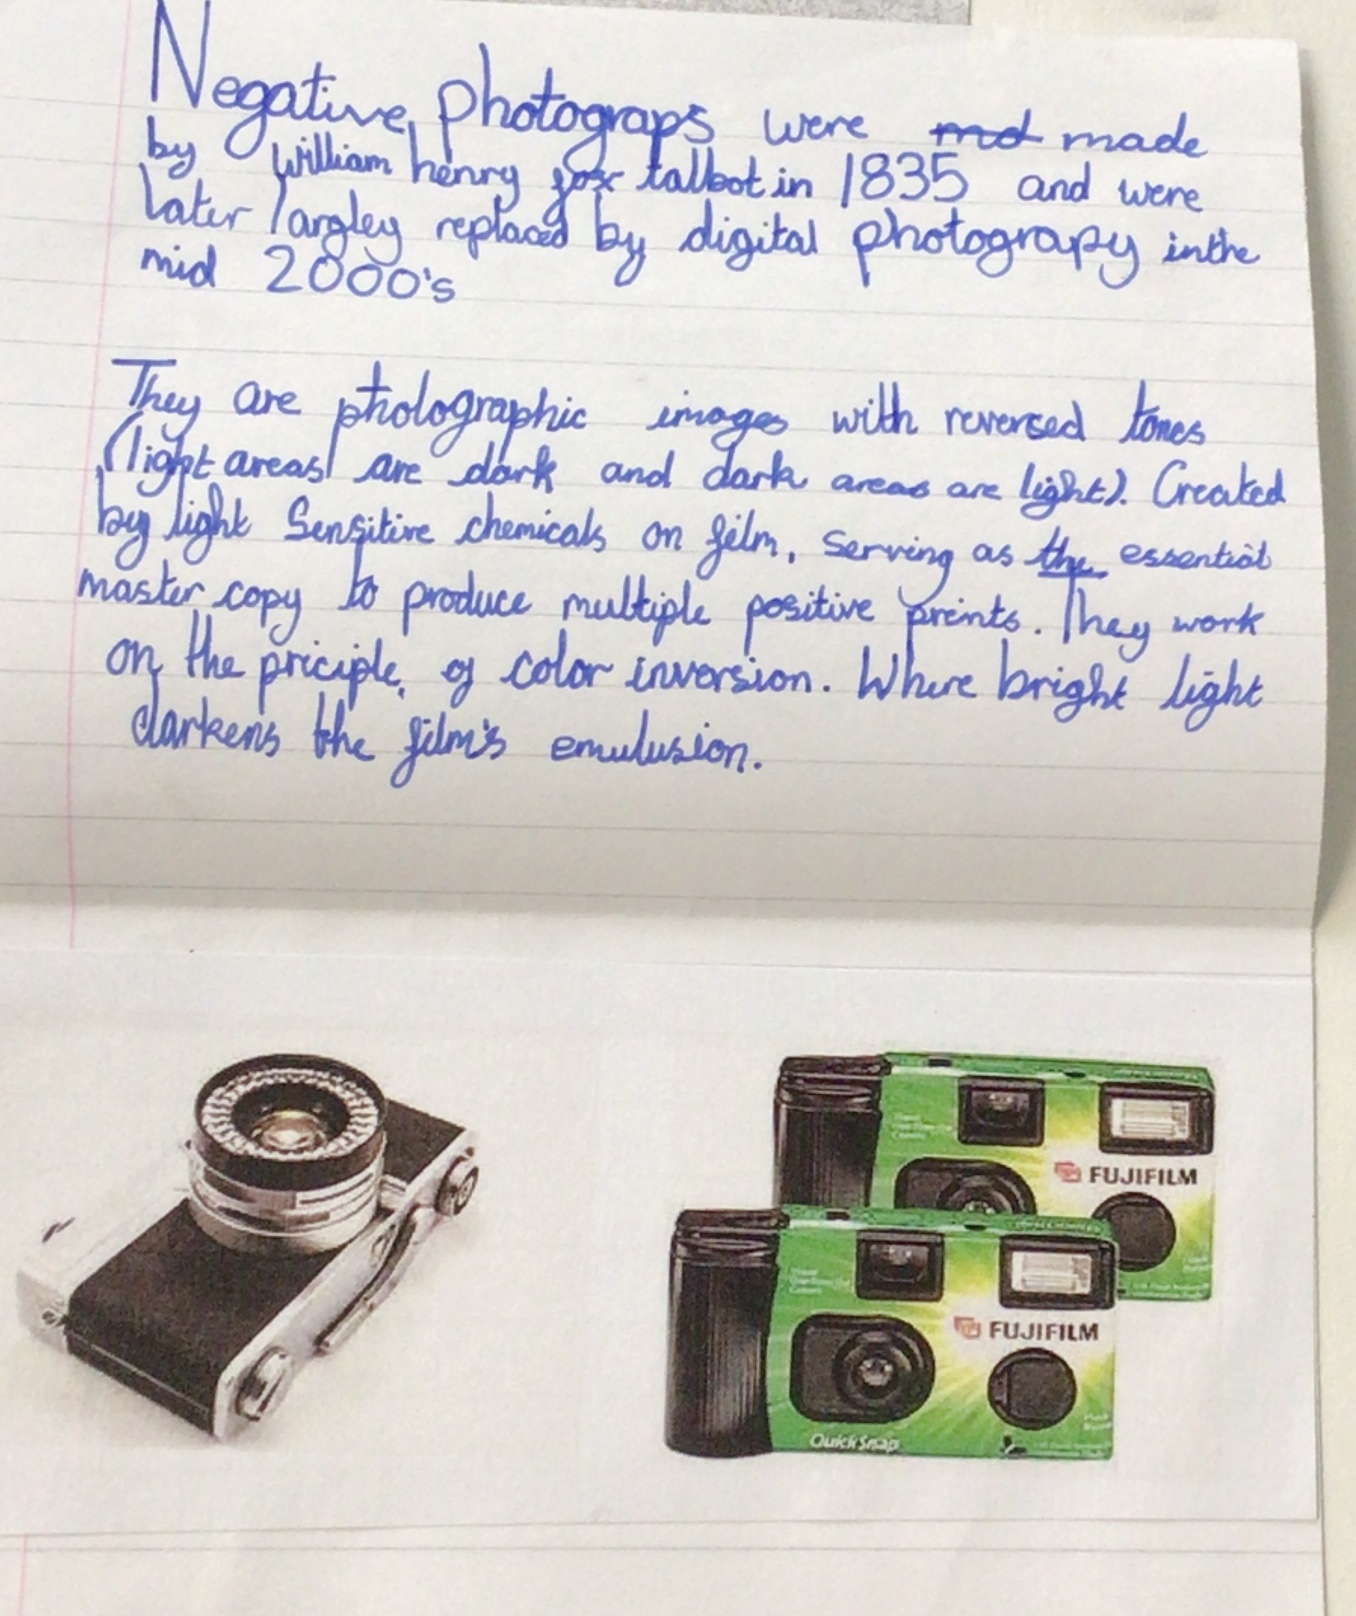 Negative photograps were md made
by william henry fox talbot in 1835 and were
later largley replaced by digital photograpy in the
mid 2000's
They are photolographic images with reversed tones
(light areas are dark and dark areas are light). Created
by light Sensitive chemicals on film, serving as the essential
master copy to produce multiple positive prints. They work
on the priciple, of color inversion. Where bright light
darkens the film's emulusion.
FUJIFILM
FUJIFILM
QuickSnap